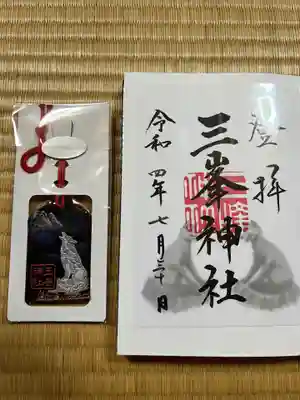 登拝
三峯神社
令和四年七月三十日
三峯
神社